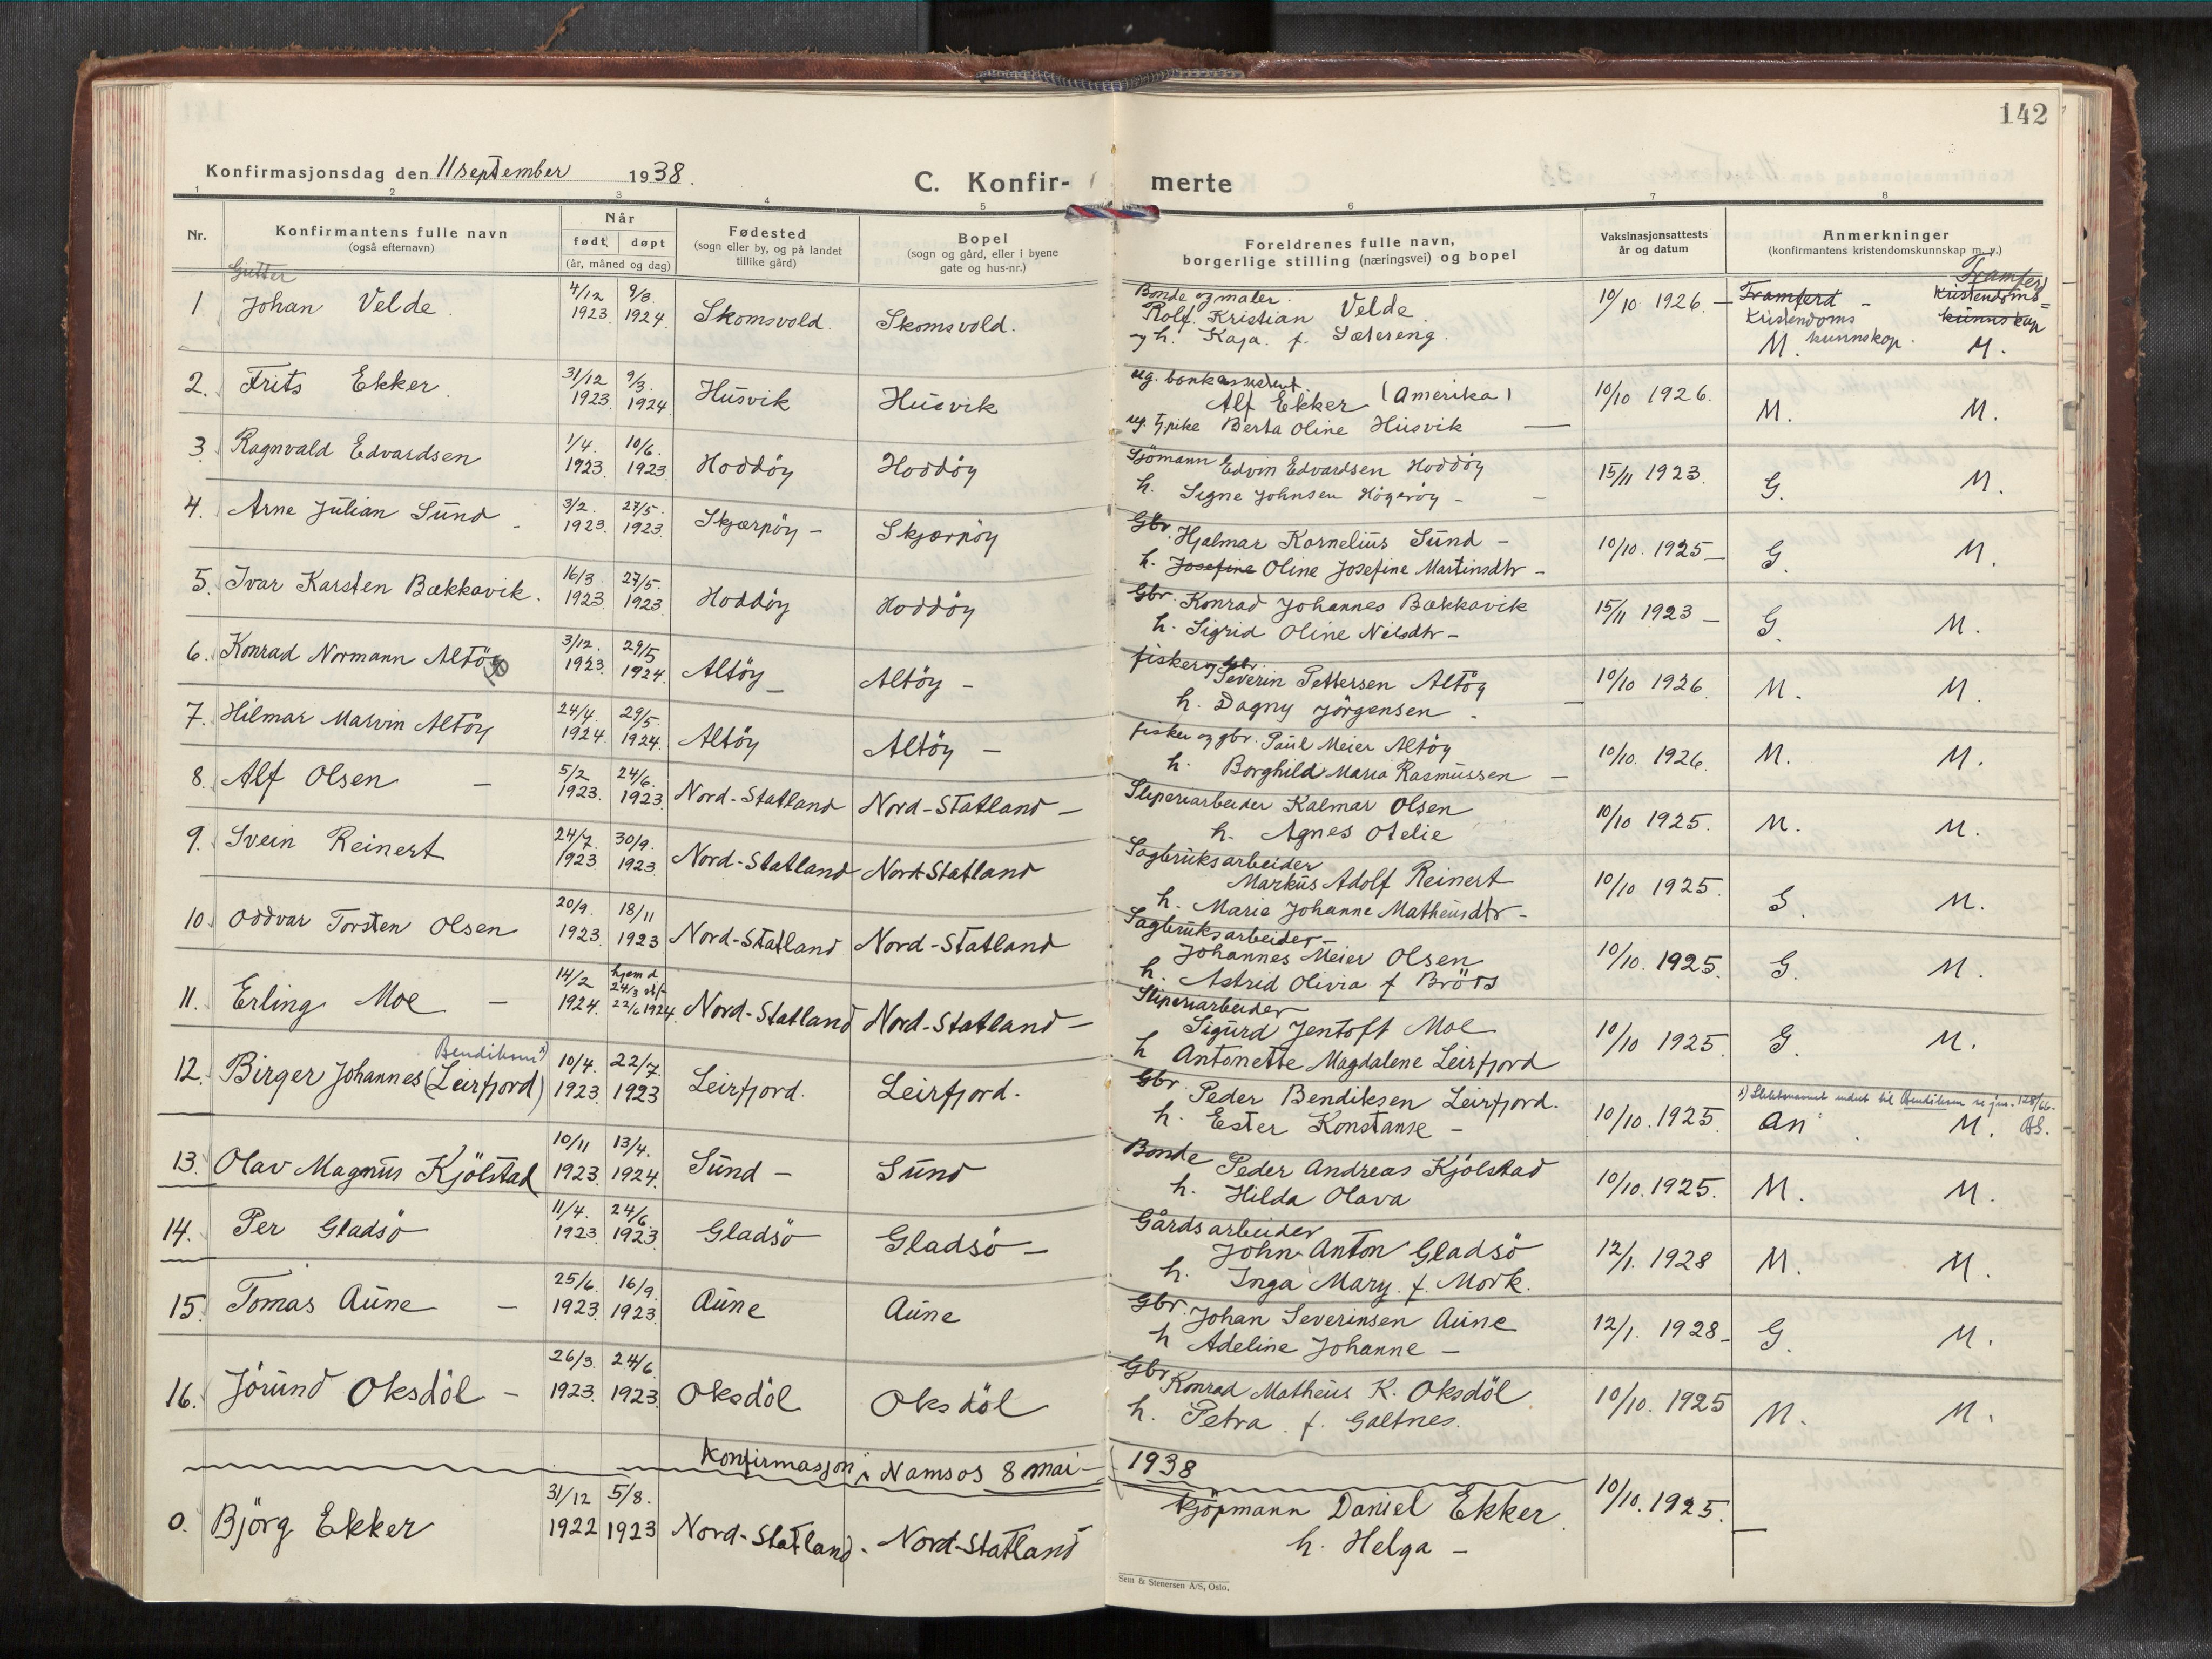 142
Konfirmasjonsdag den 11 september 1938.
C. Konfir- merte
1 2 3 4 5 6 7 8
Nr.
Konfirmantens fulle navn
(også efternavn)
Når
født døpt
(år, måned og dag)
Fødested
(sogn eller by, og på landet
tillike gård)
Bopel
(sogn og gård, eller i byene
gate og hus-nr.)
Foreldrenes fulle navn,
borgerlige stilling (næringsvei) og bopel
Vaksinasjonsattests
år og datum
Anmerkninger
(konfirmantens kristendomskunnskap m. v.)
Gutter
1 Johan Velde. 4/12 1923 9/3. 1924 Skomsvold. Skomsvold.
Bonde og maler.
Rolf Kristian Velde.
og h. Kaja. f. Sætereng.
10/10 1926 — Framferd - Framferd
Kristendoms kunnskap. Kristendoms= kunnskap
M. M.
2. Frits Ekker. 31/12 1923 9/3. 1924 Husvik Husvik
ug. bankassistent.
Alf Ekker (Amerika)
ug. pike Berta Oline Husvik —
10/10 1926. M. M.
3. Ragnvald Edvardsen 1/4. 1923 10/6. 1923 Hoddöy Hoddöy
Sjömann Edvin Edvardsen Hoddöy
h. Signe Johnsen Högeröy -
15/11 1923. G. M.
4. Arne Julian Sund - 3/2. 1923. 27/5. 1923. Skjærpöy - Skjærpöy
Gbr. Hjalmar Kornelius Sund -
h. Josefine Oline Josefine Martinsdtr -
10/10. 1925 - G. M.
5. Ivar Karsten Bækkavik. 16/3. 1923. 27/5. 1923 Hoddöy Hoddöy
Gbr. Konrad Johannes Bækkavik
h. Sigrid Oline Nilsdtr -
15/11 1923 - G. M.
6. Konrad Normann Altöy 3/12. 1923 29/5 1924. Altöy - Altöy -
fisker og gbr.
Severin Pettersen Altöy
h. Dagny Jörgensen. -
10/10 1926. M. M.
7. Hilmar Marvin Altöy 24/4. 1924. 29/5. 1924. Altöy Altöy -
fisker og gbr. Paul Meier Altöy
h. Borghild Maria Rasmussen -
10/10. 1926. M. M.
8. Alf Olsen - 5/2 1923. 24/6. 1923. Nord-Statland Nord-Statland -
Sliperiarbeider Kalmar Olsen
h. Agnes Otelie
10/10 1925. M. M.
9. Svein Reinert 24/7. 1923 30/9. 1923 Nord-Statland Nord-Statland
Sagbruksarbeider
Markus Adolf Reinert
h. Marie Johanne Matheusdtr -
10/10 1925. S. M.
10. Oddvar Torsten Olsen 20/9. 1923. 18/11 1923 Nord-Statland Nord-Statland
Sagbruksarbeider -
Johannes Meier Olsen
h. Astrid Olivia f Bröts
10/10. 1925. G. M.
11. Erling Moe - 14/2 1924. hjemd 24/3 st/f 22/6 1924. Nord-Statland Nord-Statland -
Sliperiarbeider
Sigurd Jentoft Moe
h Antonette Magdalene Leirfjord
10/10 1925. G. M.
Bendiksen x)
12. Birger Johannes (Leirfjord) 10/4. 1923 22/7. 1923 Leirfjord. Leirfjord.
Gbr. Peder Bendiksen Leirfjord.
h. Ester Konstanse -
10/10. 1925. x) Slektsnavnet endret til Bendiksen se jnr. 128/66.
an. M.
13. Olav Magnus Kjölstad 10/11 1923. 13/4. 1924. Sund - Sund
Bonde Peder Andreas Kjölstad
h. Hilda Olava
10/10. 1925. M. M.
14. Per Gladsö 11/4. 1923. 24/6. 1923 Gladsö Gladsö -
Gårdsarbeider
John Anton Gladsö
h. Inga Mary f. Mork.
12/1. 1928 M. M.
15. Tomas Aune - 25/6. 1923. 16/9. 1923. Aune Aune
Gbr. Johan Severinsen Aune
h Adeline Johanne -
12/1. 1928 - G. M.
16. Jörund Oksdöl - 26/3. 1923. 24/6. 1923. Oksdöl Oksdöl
Gbr Konrad Matheus K. Oksdöl.
h. Petra. f. Galtnes.
10/10. 1925 M. M.
Konfirmasjon i Namsos 8 mai - 1938
0. Björg Ekker 31/12 1922 5/8. 1923 Nord-Statland. Nord-Statland
Kjöpmann Daniel Ekker.
h. Helga -
10/10. 1925. -
Sem & Stenersen A/S, Oslo.